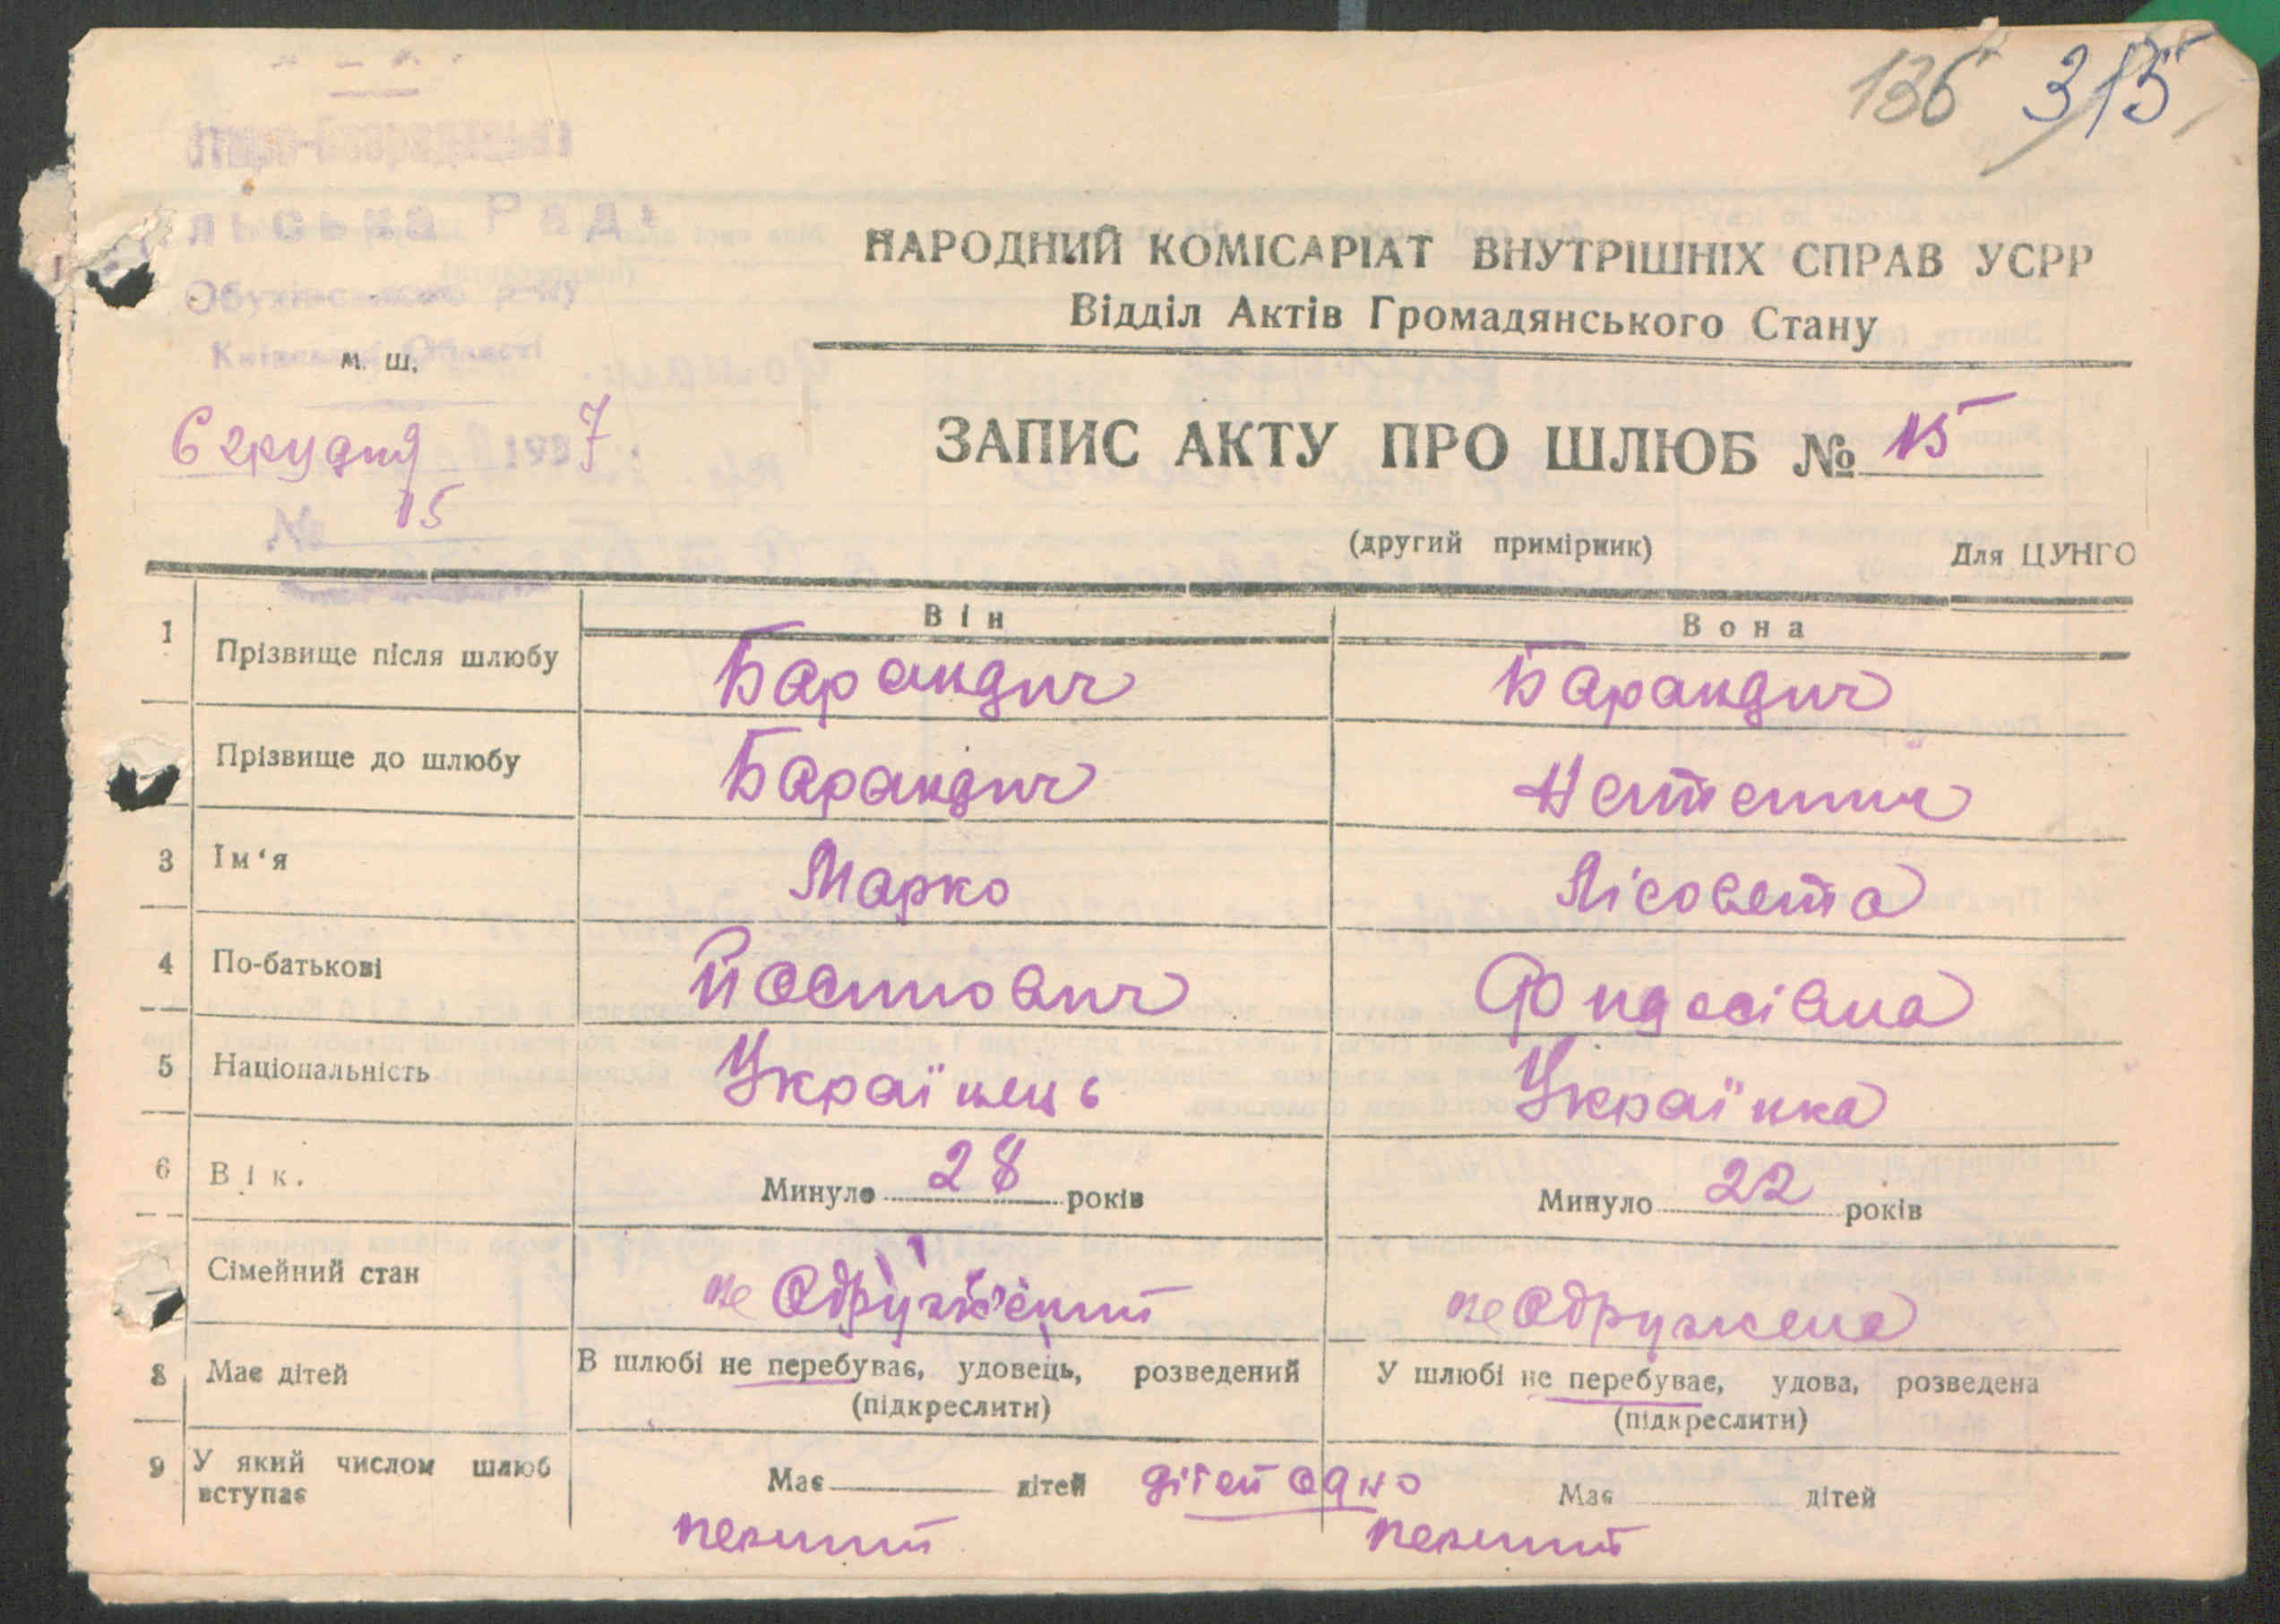 136 315
льська Рад
Обухівського р-ну
Київської Області
м. ш.
НАРОДНИЙ КОМІСАРІАТ ВНУТРІШНІХ СПРАВ УСРР
Відділ Актів Громадянського Стану
6 грудня 1937
№ 15
ЗАПИС АКТУ ПРО ШЛЮБ № 15
(другий примірник) Для ЦУНГО
Він Вона
1 Прізвище після шлюбу Барандич Барандич
Прізвище до шлюбу Барандич
3 Ім‘я Марко Лісовета
4 По-батькові Йосипович
5 Національність Українець Українка
6 Вік. Минуло 28 років Минуло 22 років
Сімейний стан не Одружений не Одружена
8 Має дітей В шлюбі не перебуває, удовець, розведений У шлюбі не перебуває, удова, розведена
(підкреслити) (підкреслити)
9 У який числом шлюб вступає Має дітей дітей одно Має дітей
первий первий